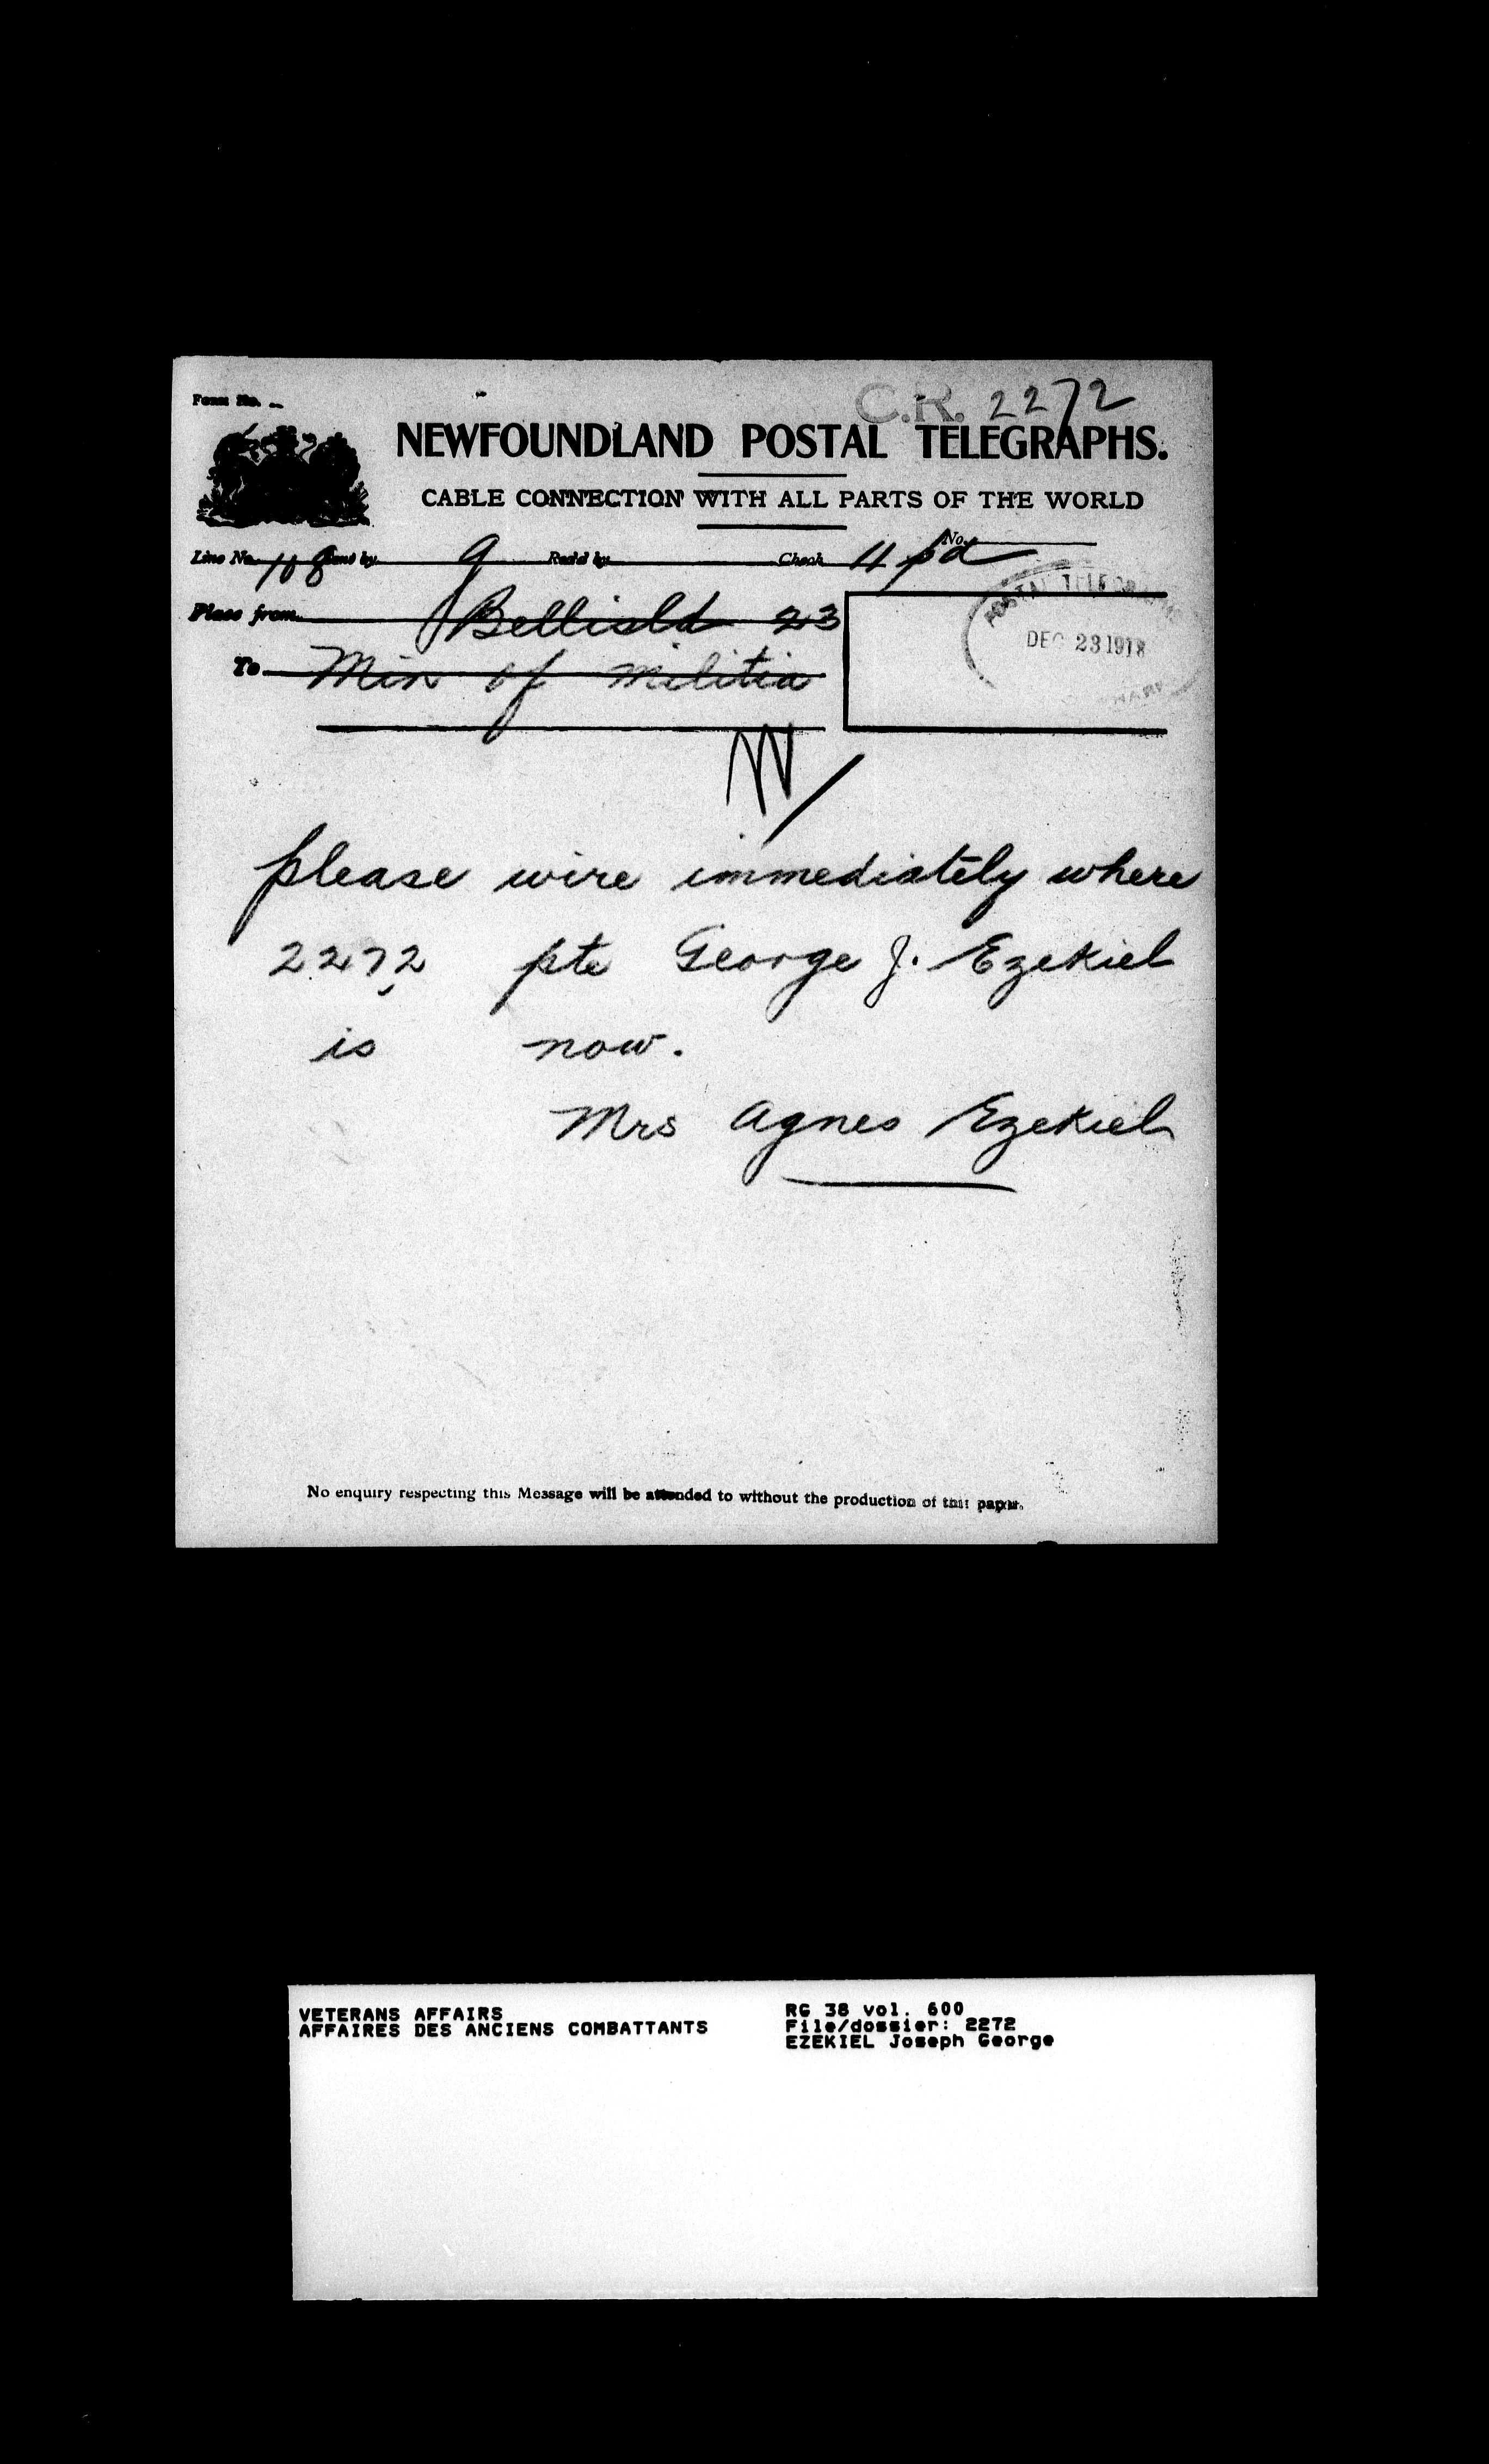 C.R. 2272
Form No.
NEWFOUNDLAND POSTAL TELEGRAPHS.
CABLE CONNECTION WITH ALL PARTS OF THE WORLD
Line No. Sent by Rec'd by Check 11 pd No.
Place from Bellisld 23
To Min of Militia
POSTAL TELEGRAPHS
DEC 23 1918
please wire immediately where
2272 pte George J. Ezekiel
is now.
Mrs Agnes Ezekiel
No enquiry respecting this Message will be attended to without the production of this paper.
VETERANS AFFAIRS RG 38 vol. 600
AFFAIRES DES ANCIENS COMBATTANTS File/dossier: 2272
EZEKIEL Joseph George